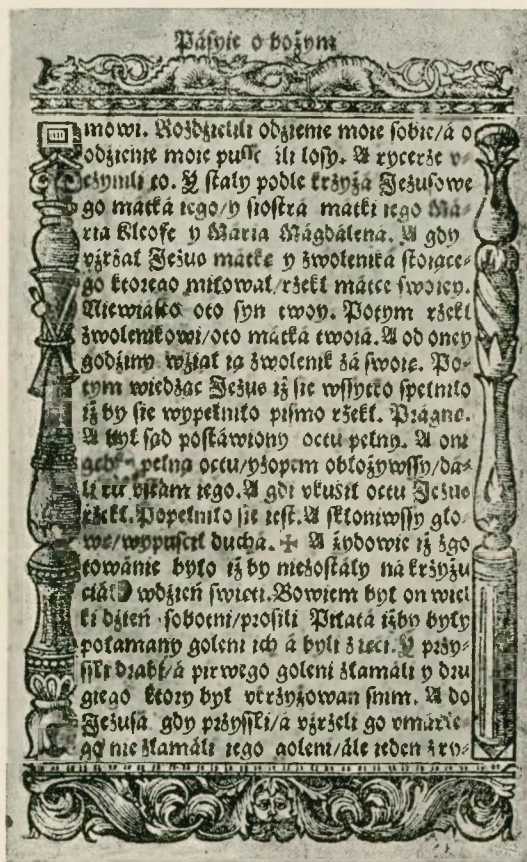 Pásyie o bożym
mowi. Rozdzielili odzienie moie sobie/á o
odzienie moie pus ili losy. A rycerże v-
cżynili to. Y stały podle krżyżá Jezusowe
go mátká iego/y siostrá mátki iego Má-
ria Kleofe y Mária Mágdálená. A gdy
vyżrżał Jezus mátkę y zwoleniká stoiące-
go ktorego miłował/rżekł mátce swoiey.
Niewiásto oto syn twoy. Potym rżekł
zwolenikowi/oto mátká twoiá. A od oney
godżiny wżiął ią zwolenik zá swoię. Po-
tym wiedząc Jezus iż sie wssytko spełniło
iż by sie wypełniło pismo rżekł. Prágnę.
A był sąd postáwiony octu pełny. A oni
gębkę pełną octu/yzopem obłożywssy/dá-
li ku vstam iego. A gdi vkusił octu Jezus
rżekł. Popełniło sie iest. A skłoniwssy gło-
wę/wypuscił duchá. ✠ A żydowie iż zgo
towánie było iż by niezostały ná krżyżu
ciáłá wdzień swięti. Bowiem był on wiel
ki dzień sobotni/prosili Piłatá iżby były
połamány goleni ich á byli zięci. Y przy-
sśli drabi/á pirwego goleni złamáli y dru
giego ktory był vkrżyżowan snim. A do
Jezusá gdy przyssli/á vżrżeli go vmárłe-
go nie złamáli iego goleni/ále ieden z ry-